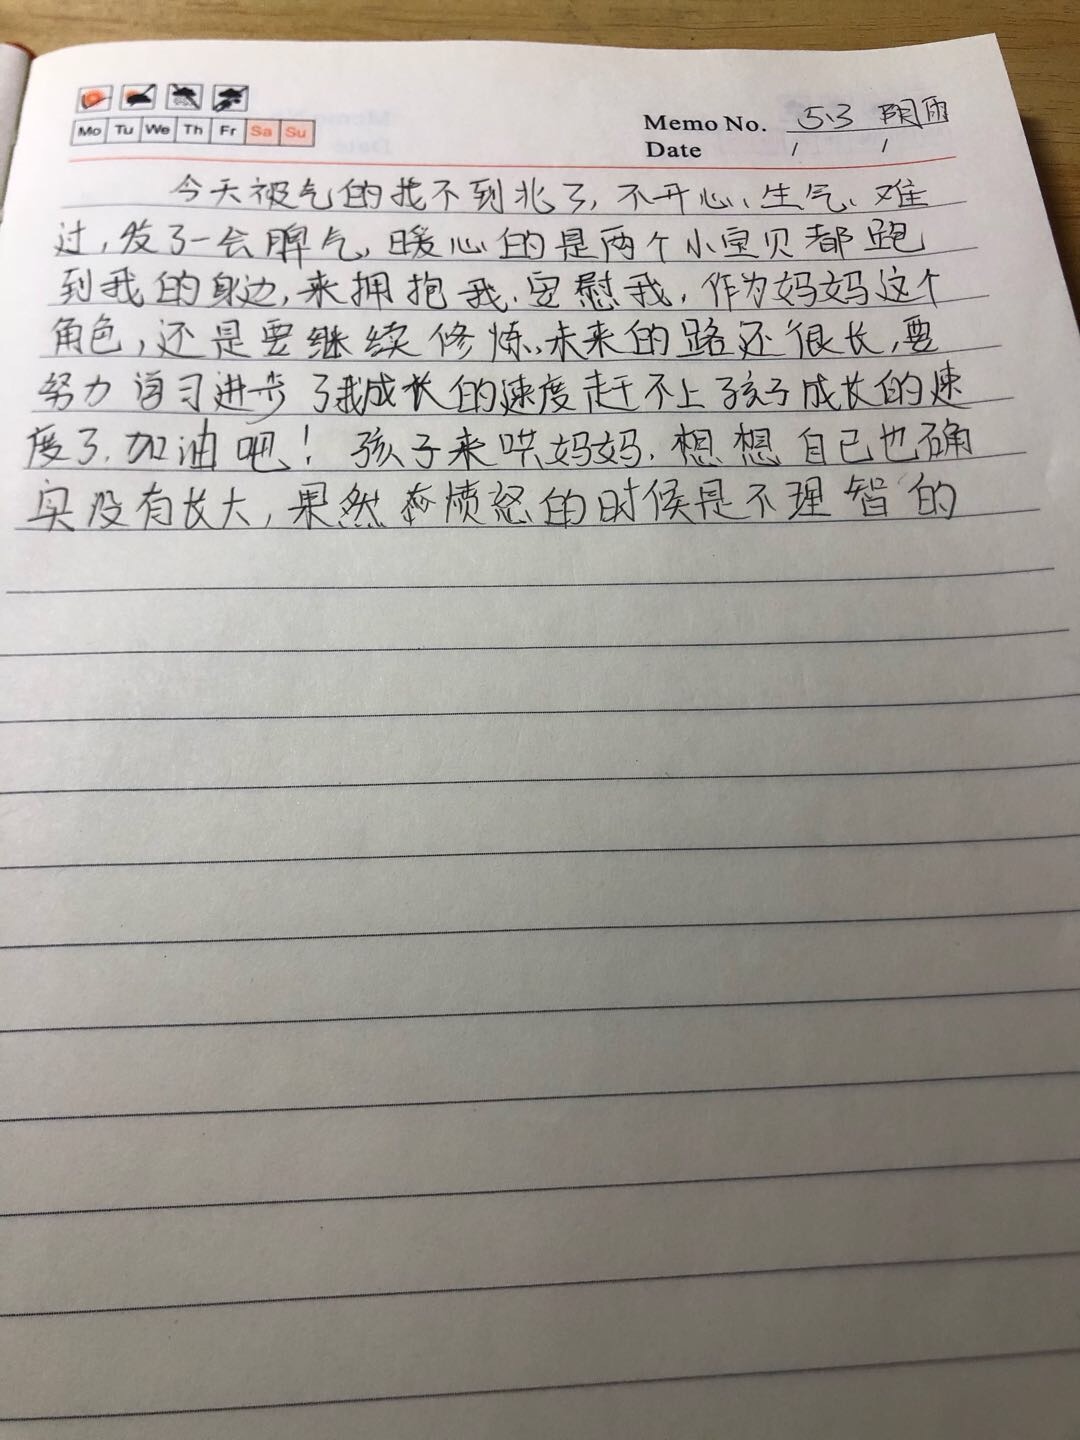 Mo Tu We Th Fr Sa Su
Memo No. 5.3 阴雨
Date / /
今天被气的找不到北了,不开心、生气、难
过,发了一会脾气,暖心的是两个小宝贝都跑
到我的身边,来拥抱我.安慰我,作为妈妈这个
角色,还是要继续修炼、未来的路还很长,要
努力学习进步了我成长的速度赶不上孩子成长的速
度了.加油吧!孩子来哄妈妈.想想自己也确
实没有长大,果然在愤怒的时候是不理智的